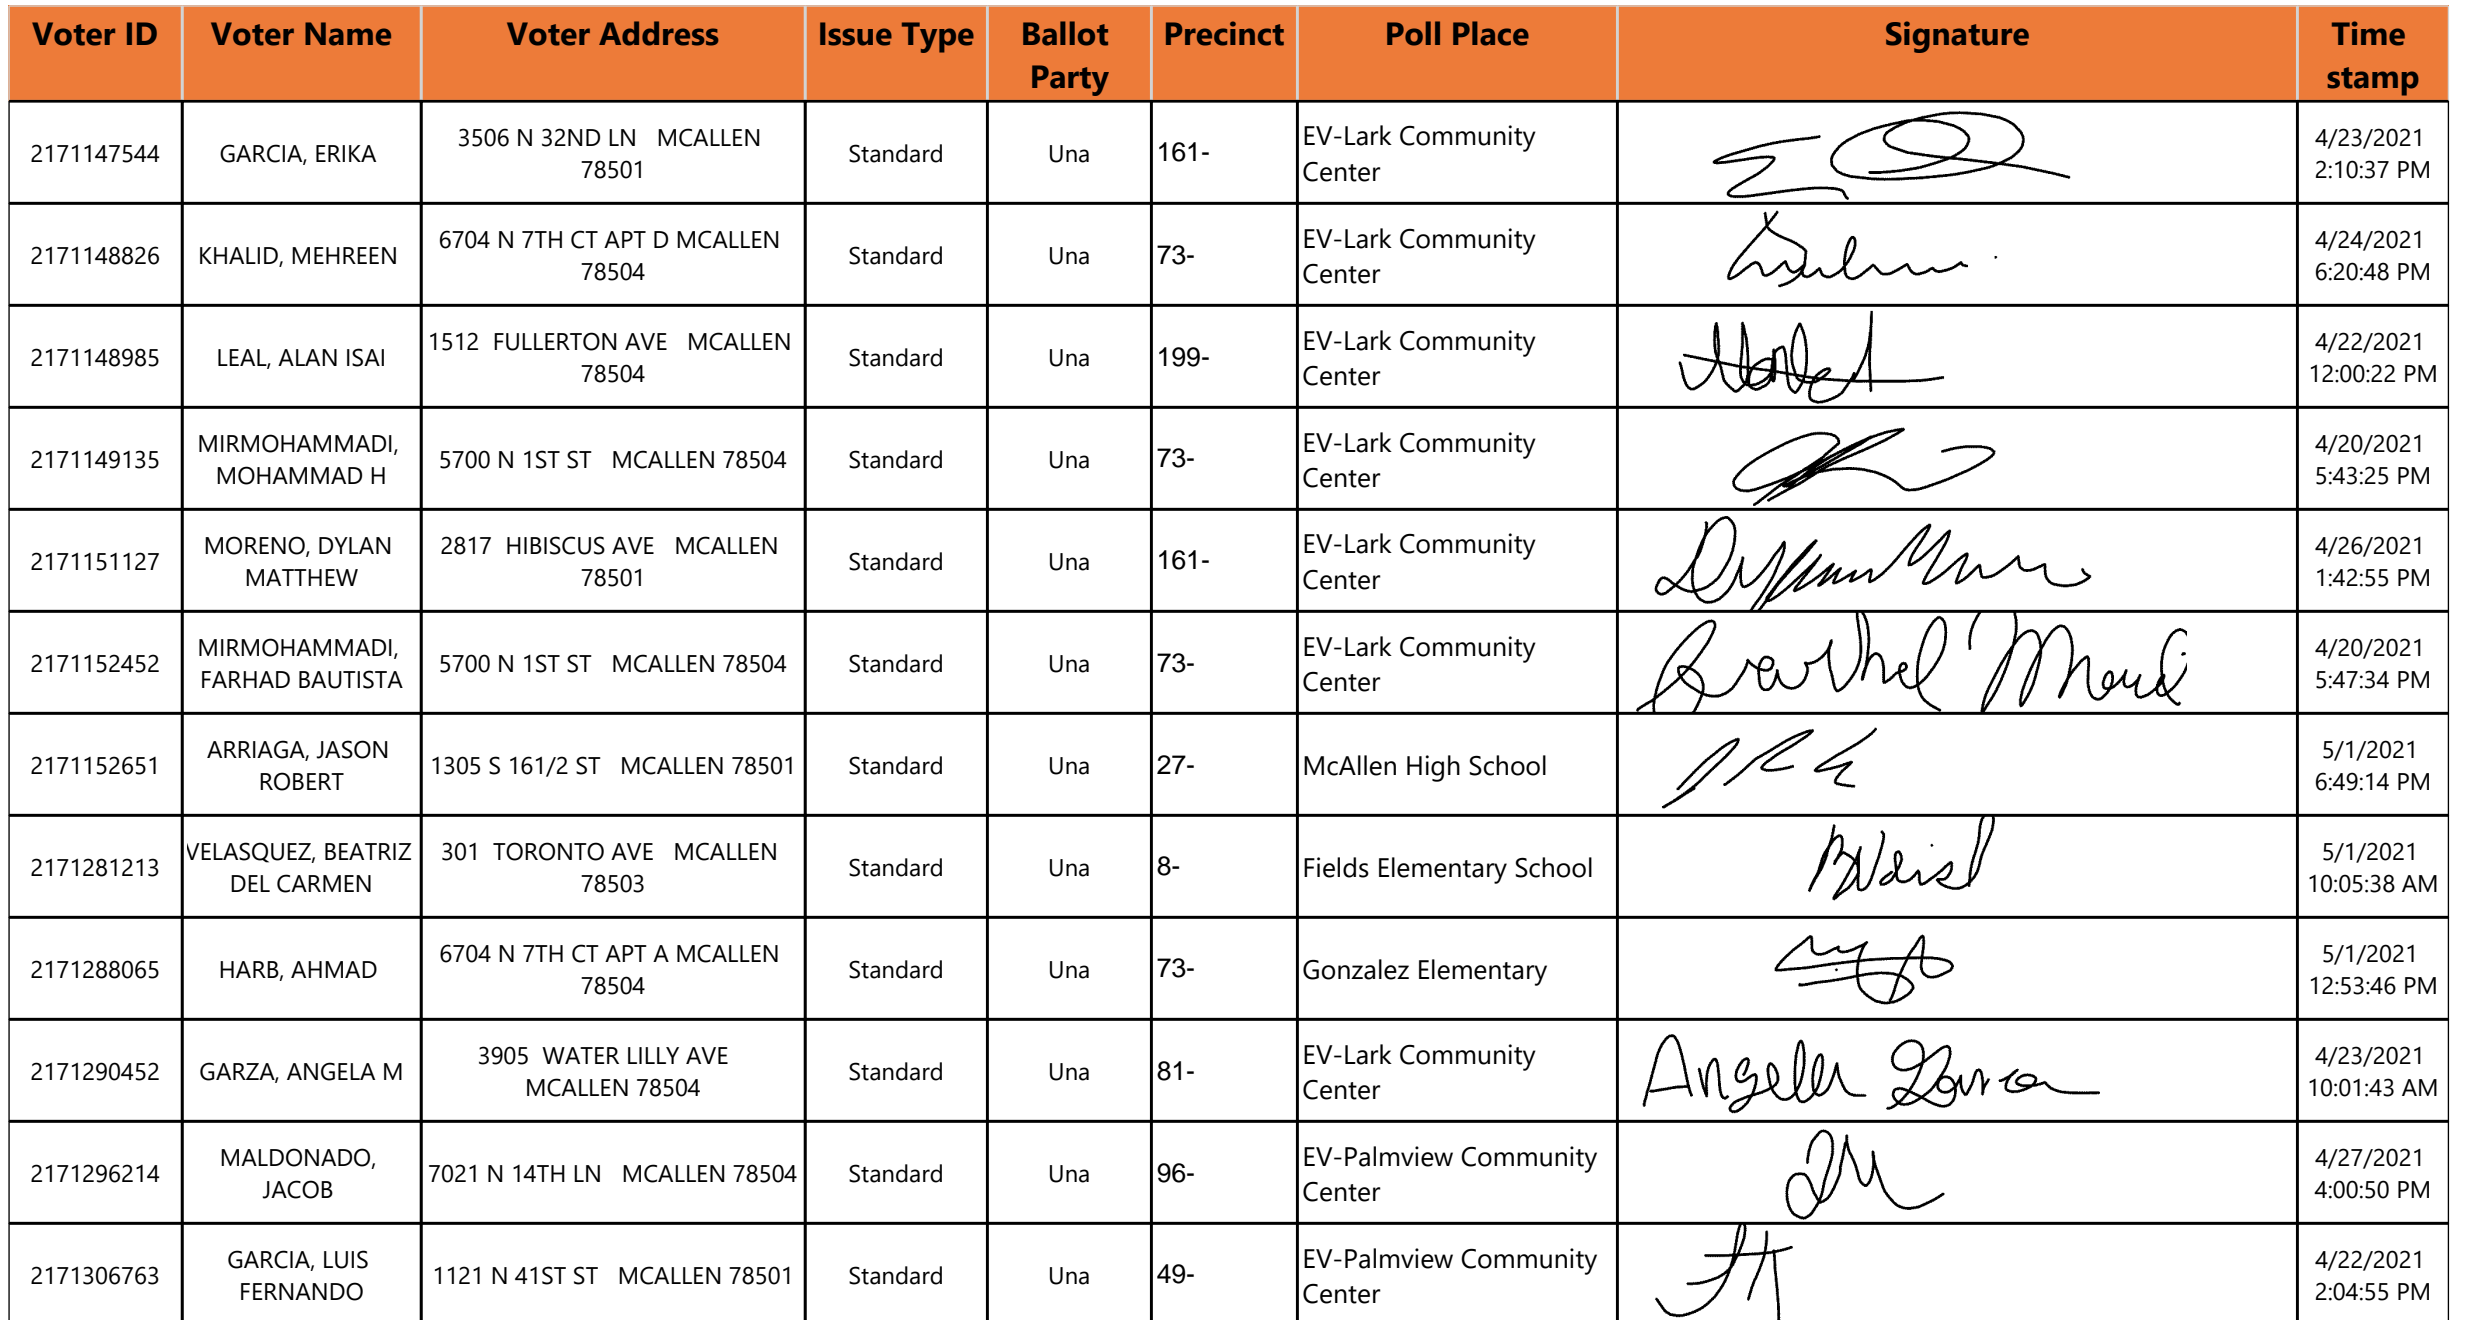 Voter ID Voter Name Voter Address Issue Type Ballot Party Precinct Poll Place Signature Time stamp
2171147544 GARCIA, ERIKA 3506 N 32ND LN MCALLEN 78501 Standard Una 161- EV-Lark Community Center 4/23/2021 2:10:37 PM
2171148826 KHALID, MEHREEN 6704 N 7TH CT APT D MCALLEN 78504 Standard Una 73- EV-Lark Community Center 4/24/2021 6:20:48 PM
2171148985 LEAL, ALAN ISAI 1512 FULLERTON AVE MCALLEN 78504 Standard Una 199- EV-Lark Community Center 4/22/2021 12:00:22 PM
2171149135 MIRMOHAMMADI, MOHAMMAD H 5700 N 1ST ST MCALLEN 78504 Standard Una 73- EV-Lark Community Center 4/20/2021 5:43:25 PM
2171151127 MORENO, DYLAN MATTHEW 2817 HIBISCUS AVE MCALLEN 78501 Standard Una 161- EV-Lark Community Center 4/26/2021 1:42:55 PM
2171152452 MIRMOHAMMADI, FARHAD BAUTISTA 5700 N 1ST ST MCALLEN 78504 Standard Una 73- EV-Lark Community Center 4/20/2021 5:47:34 PM
2171152651 ARRIAGA, JASON ROBERT 1305 S 161/2 ST MCALLEN 78501 Standard Una 27- McAllen High School 5/1/2021 6:49:14 PM
2171281213 VELASQUEZ, BEATRIZ DEL CARMEN 301 TORONTO AVE MCALLEN 78503 Standard Una 8- Fields Elementary School 5/1/2021 10:05:38 AM
2171288065 HARB, AHMAD 6704 N 7TH CT APT A MCALLEN 78504 Standard Una 73- Gonzalez Elementary 5/1/2021 12:53:46 PM
2171290452 GARZA, ANGELA M 3905 WATER LILLY AVE MCALLEN 78504 Standard Una 81- EV-Lark Community Center Angela Garza 4/23/2021 10:01:43 AM
2171296214 MALDONADO, JACOB 7021 N 14TH LN MCALLEN 78504 Standard Una 96- EV-Palmview Community Center 4/27/2021 4:00:50 PM
2171306763 GARCIA, LUIS FERNANDO 1121 N 41ST ST MCALLEN 78501 Standard Una 49- EV-Palmview Community Center 4/22/2021 2:04:55 PM